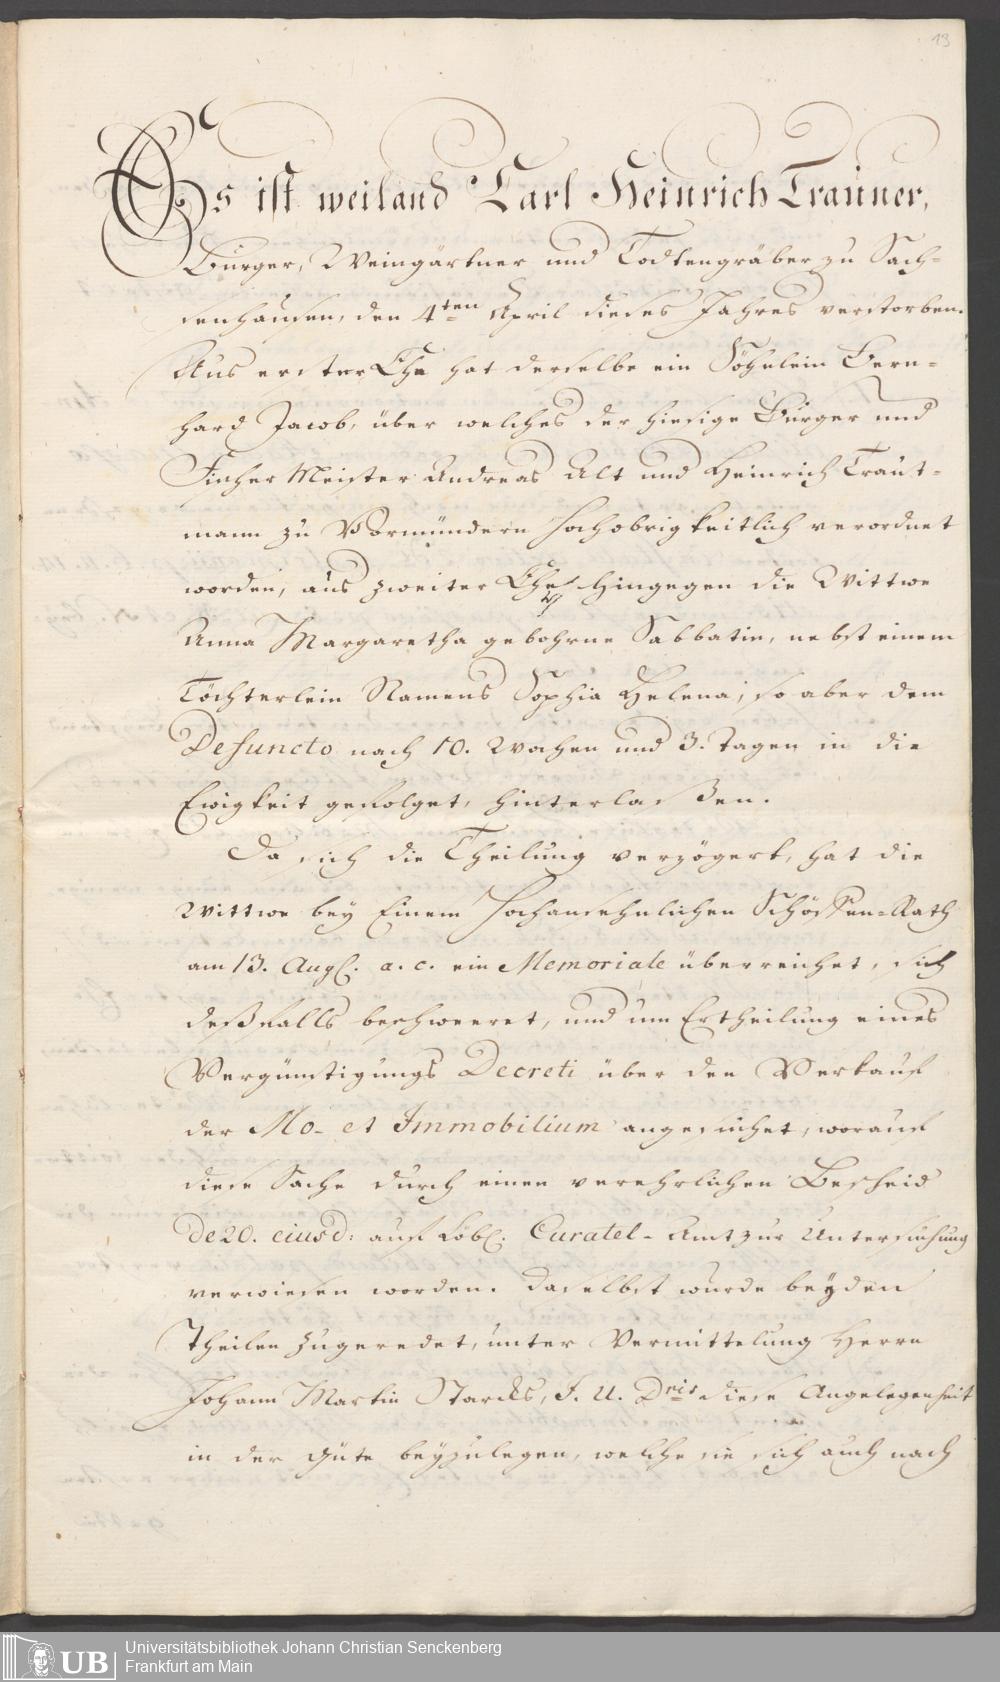 13
Es ist weiland Carl Heinrich Trauner,
Burger, Weingärtner und Todtengräber zu Sach-
senhausen, den 4ten April dieses Jahres verstorben.
Aus erster Ehe hat derselbe ein Söhnlein Bern-
hard Jacob, über welches der hiesige Burger und
Fischer Meister Andreas Alt und Heinrich Traut-
mann zu Vormündern Hochobrigkeitlich verordnet
worden, aus zweiter Ehe hingegen die Wittwe
Anna Margaretha gebohrne Sabbatin, nebst einem
Töchterlein Namens Sophia Helena, so aber dem
Defuncto nach 10. Wochen und 3. Tagen in die
Ewigkeit gefolget, hinterlaßen.
Da sich die Theilung verzögert, hat die
Wittwe bey Einem Hochansehnlichen Schöffen-Rath
am 13. Aug. a. c. ein Memoriale überreichet, sich
deßfalls beschweeret, und um Ertheilung eines
Vergünstigungs Decreti über den Verkauf
der Mo- et Immobilium angesuchet, worauf
diese Sache durch einen verehrlichen Bescheid
de 20. eiusd: auf Löbl. Curatel-Amt zur Untersuchung
verwiesen worden. Daselbst wurde beyden
Theilen zugeredet, unter Vermittelung Herrn
Johann Martin Starcks, J. U. Dris diese Angelegenheit
in der Güte beyzulegen, welche sie sich auch nach
UB
Universitätsbibliothek Johann Christian Senckenberg
Frankfurt am Main